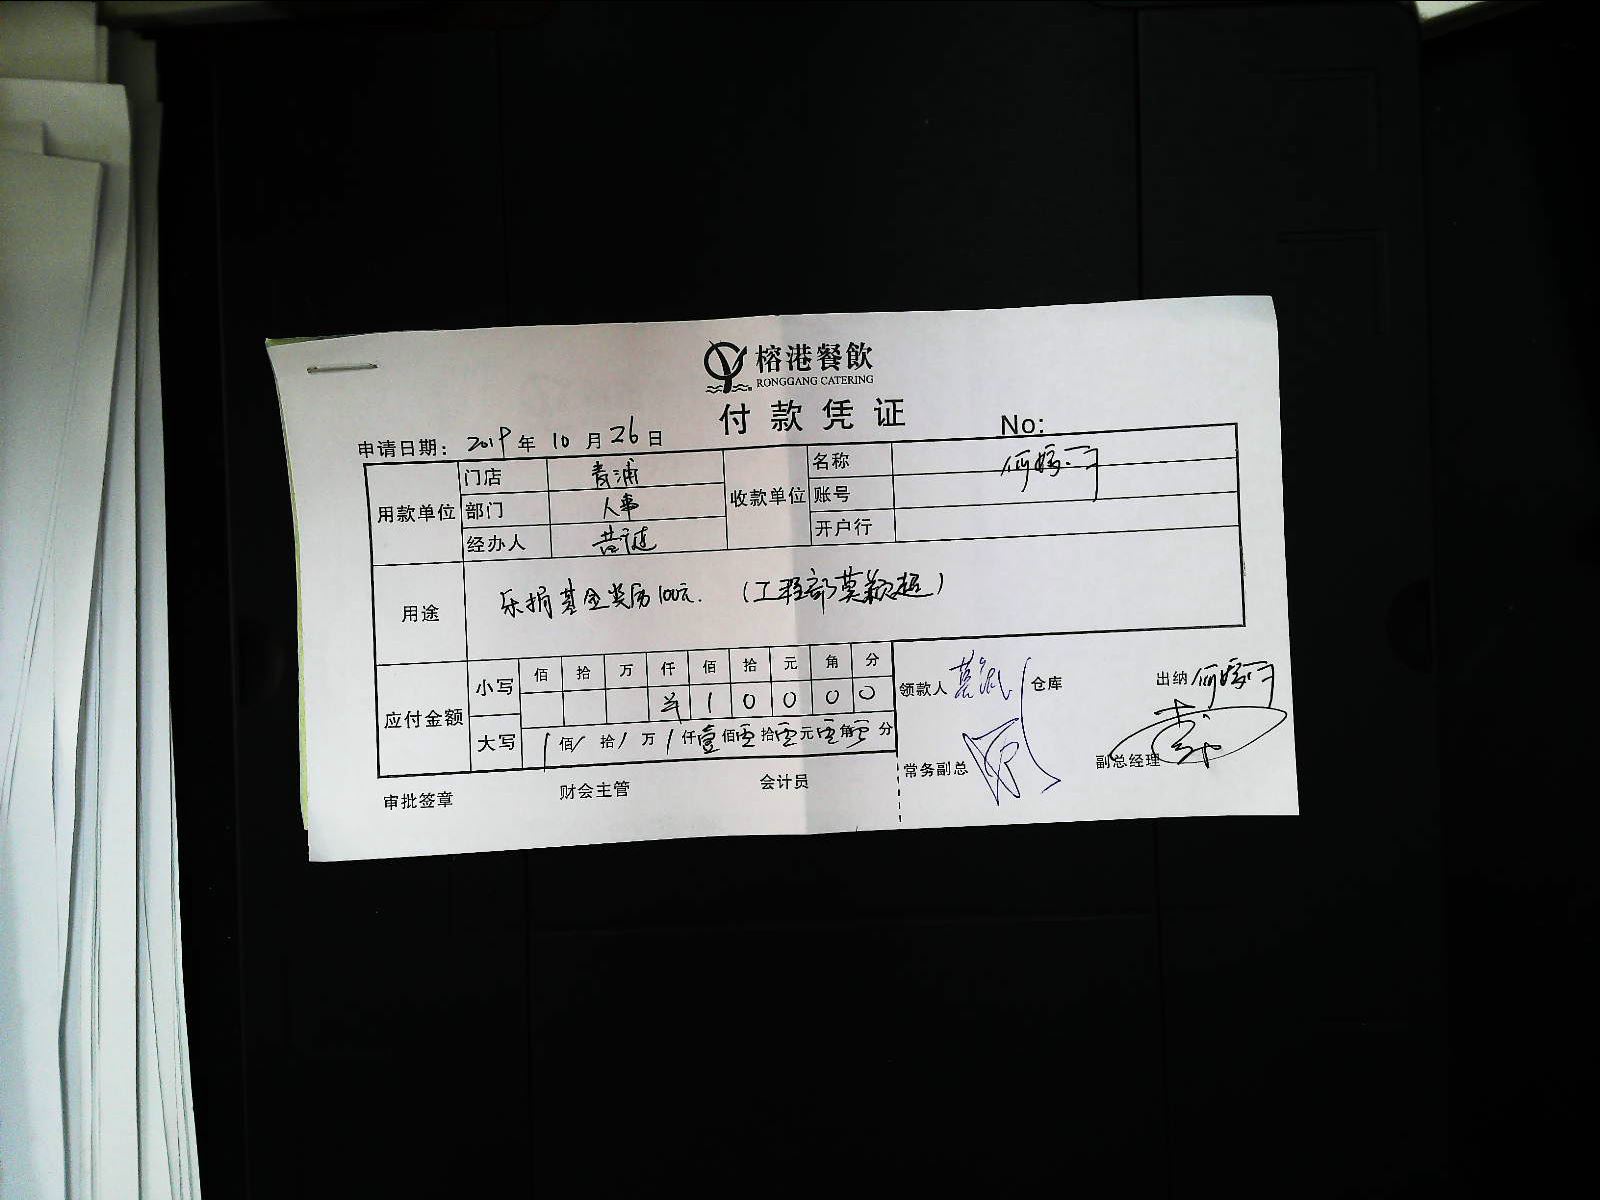 榕港餐飲
RONGGANG CATERING
付款凭证
No:
申请日期: 2019年10月26日
用款单位 门店 青浦 收款单位 名称
部门 人事 账号
经办人 开户行
用途 乐捐基金奖励100元. (工程部莫颖超)
应付金额 小写 佰 拾 万 仟 佰 拾 元 角 分
¥ 1 0 0 0 0
大写 / 佰 / 拾 / 万 / 仟 壹 佰 零 拾 零 元 零 角 零 分
领款人 仓库 出纳
常务副总 副总经理
审批签章 财会主管 会计员